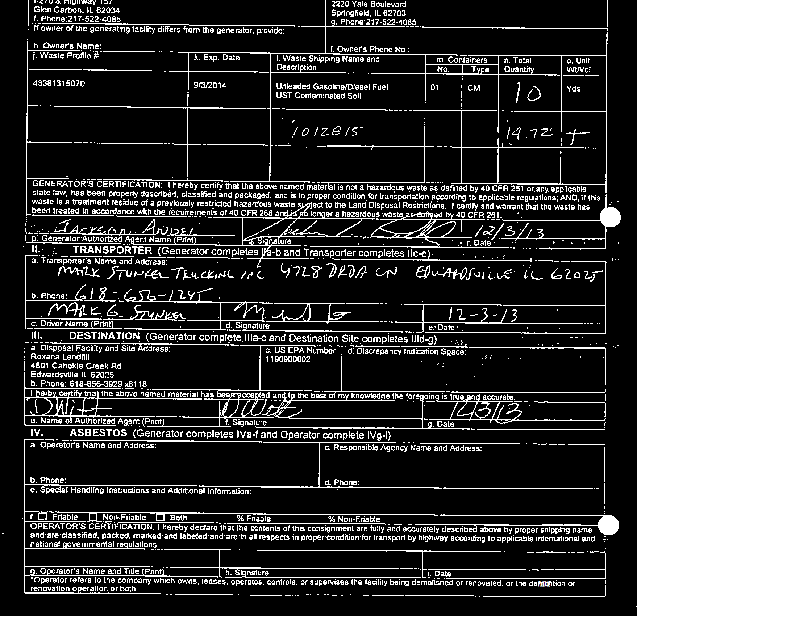 I-270 & Highway 157
2220 Yale Boulevard
Glen Carbon, IL 62034
Springfield, IL 62703
f. Phone: 217-522-4085
g. Phone: 217-522-4085
If owner of the generating facility differs from the generator, provide:
h. Owner's Name:
i. Owner's Phone No.:
j. Waste Profile #
k. Exp. Date
l. Waste Shipping Name and Description
m. Containers
No.
Type
n. Total Quantity
o. Unit Wt/Vol
9/3/2014
Unleaded Gasoline/Diesel Fuel
UST Contaminated Soil
01
CM
10
Yds
1012815
19.72
GENERATOR'S CERTIFICATION: I hereby certify that the above named material is not a hazardous waste as defined by 40 CFR 261 or any applicable
state law, has been properly described, classified and packaged, and is in proper condition for transportation according to applicable regulations; AND, if this
waste is a treatment residue of a previously restricted hazardous waste subject to the Land Disposal Restrictions. I certify and warrant that the waste has
been treated in accordance with the requirements of 40 CFR 268 and is no longer a hazardous waste as defined by 40 CFR 261.
12/3/13
p. Generator Authorized Agent Name (Print)
q. Signature
r. Date
II. TRANSPORTER (Generator completes IIa-b and Transporter completes IIc-e)
a. Transporter's Name and Address:
MARK STUNKEL TRUCKING INC 4728 DRDA LN EDWARDSVILLE IL 62025
b. Phone: 618-656-1245
MARK G. STUNKEL
12-3-13
c. Driver Name (Print)
d. Signature
e. Date
III. DESTINATION (Generator complete IIIa-c and Destination Site completes IIId-g)
a. Disposal Facility and Site Address:
c. US EPA Number
d. Discrepancy Indication Space:
Roxana Landfill
1190900002
4601 Cahokia Creek Rd
Edwardsville IL 62025
b. Phone: 618-656-3929 x8118
I hereby certify that the above named material has been accepted and to the best of my knowledge the foregoing is true and accurate.
DWitt
12/3/13
e. Name of Authorized Agent (Print)
f. Signature
g. Date
IV. ASBESTOS (Generator completes IVa-f and Operator complete IVg-i)
a. Operator's Name and Address:
c. Responsible Agency Name and Address:
b. Phone:
d. Phone:
e. Special Handling Instructions and Additional Information:
f. Friable Non-Friable Both % Friable % Non-Friable
OPERATOR'S CERTIFICATION: I hereby declare that the contents of this consignment are fully and accurately described above by proper shipping name
and are classified, packed, marked and labeled and are in all respects in proper condition for transport by highway according to applicable international and
national governmental regulations.
g. Operator's Name and Title (Print)
h. Signature
i. Date
*Operator refers to the company which owns, leases, operates, controls, or supervises the facility being demolished or renovated, or the demolition or
renovation operation, or both